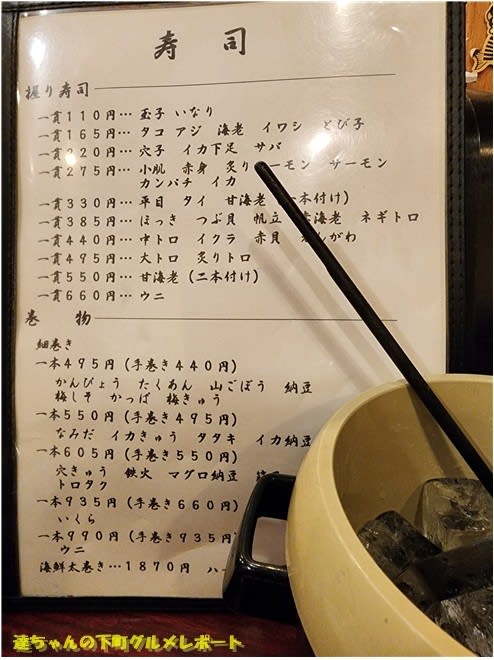 寿司
握り寿司
一貫110円… 玉子 いなり
一貫165円… タコ アジ 海老 イワシ とび子
一貫220円… 穴子 イカ下足 サバ
一貫275円… 小肌 赤身 炙りサーモン サーモン
カンパチ イカ
一貫330円… 平目 タイ 甘海老 本付け)
一貫385円… ほっき つぶ貝 帆立 海老 ネギトロ
一貫440円… 中トロ イクラ 赤貝 んがわ
一貫495円… 大トロ 炙りトロ
一貫550円… 甘海老 (二本付け)
一貫660円… ウニ
巻物
細巻き
一本495円 (手巻き440円)
かんぴょう たくあん 山ごぼう 納豆
梅しそ かっぱ 梅きゅう
一本550円 (手巻き495円)
なみだ イカきゅう タタキ イカ納豆
一本605円 (手巻き550円)
穴きゅう 鉄火 マグロ納豆
トロタク
一本935円 (手巻き660円)
いくら
一本990円 (手巻き935円
ウニ
海鮮太巻き…1870円 ハー
達ちゃんの下町グルメレポート